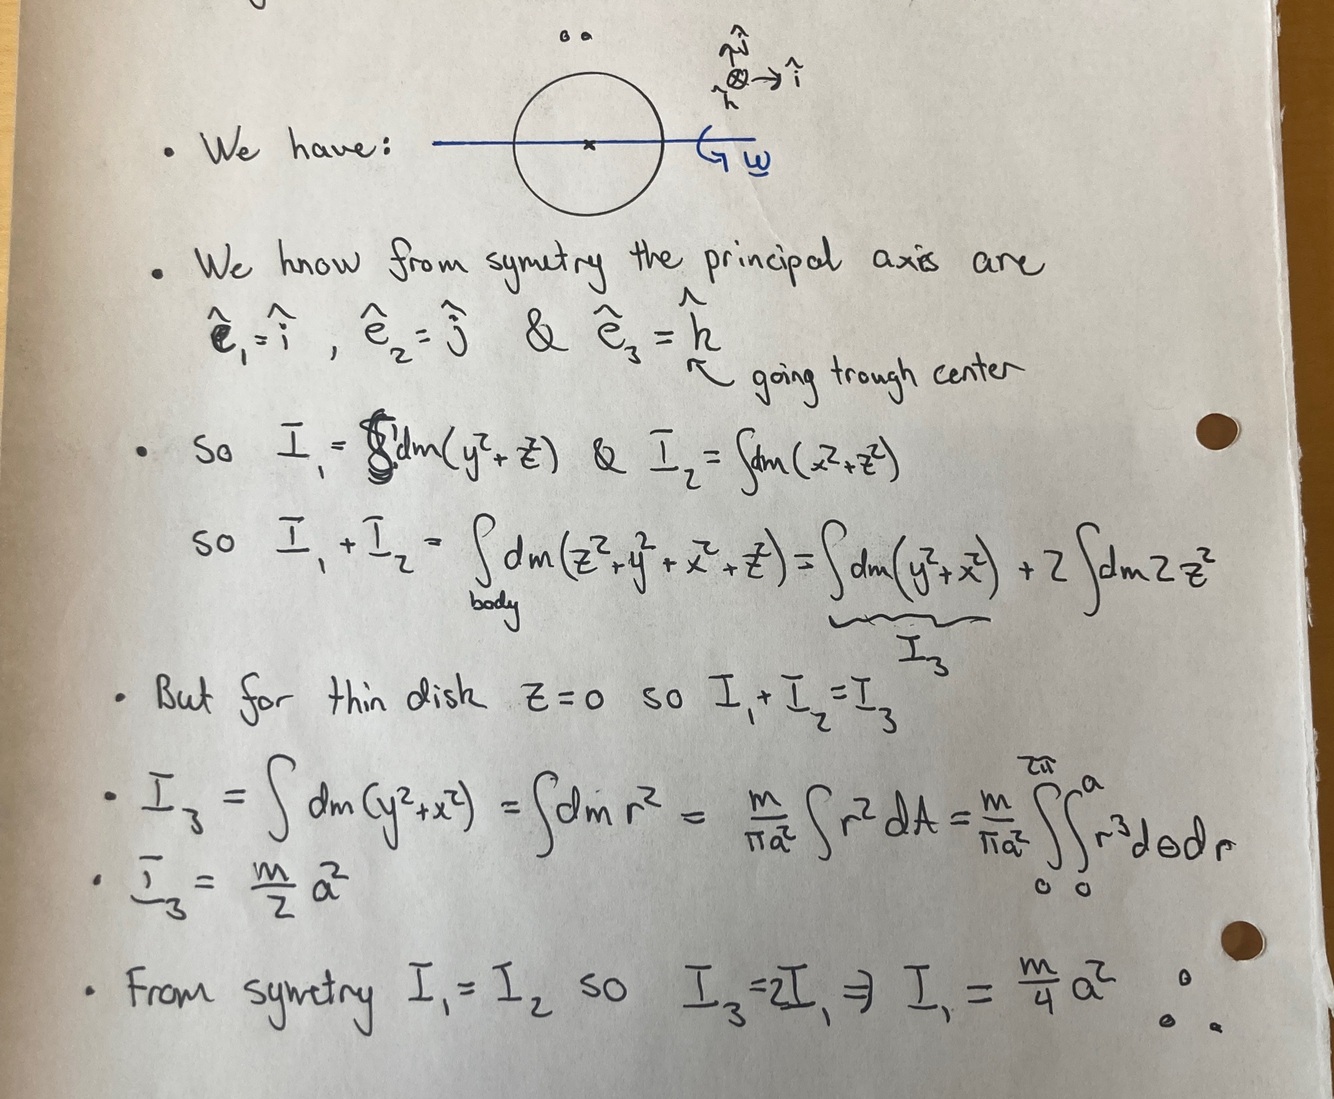 ĵ
⊗ → î
k̂
• We have:
ω
• We know from symetry the principal axis are
ê₁ = î , ê₂ = ĵ & ê₃ = k̂
going trough center
• So I₁ = ∫dm(y² + z²) & I₂ = ∫dm(x² + z²)
so I₁ + I₂ = ∫dm(z² + y² + x² + z²) = ∫dm(y² + x²) + 2∫dm2z²
body
I₃
• But for thin disk z = 0 so I₁ + I₂ = I₃
• I₃ = ∫dm(y² + x²) = ∫dm r² = m/πa² ∫r² dA = m/πa² ∫₀^2π ∫₀^a r³dθdr
• I₃ = m/2 a²
• From symetry I₁ = I₂ so I₃ = 2I₁ ⇒ I₁ = m/4 a² ∴